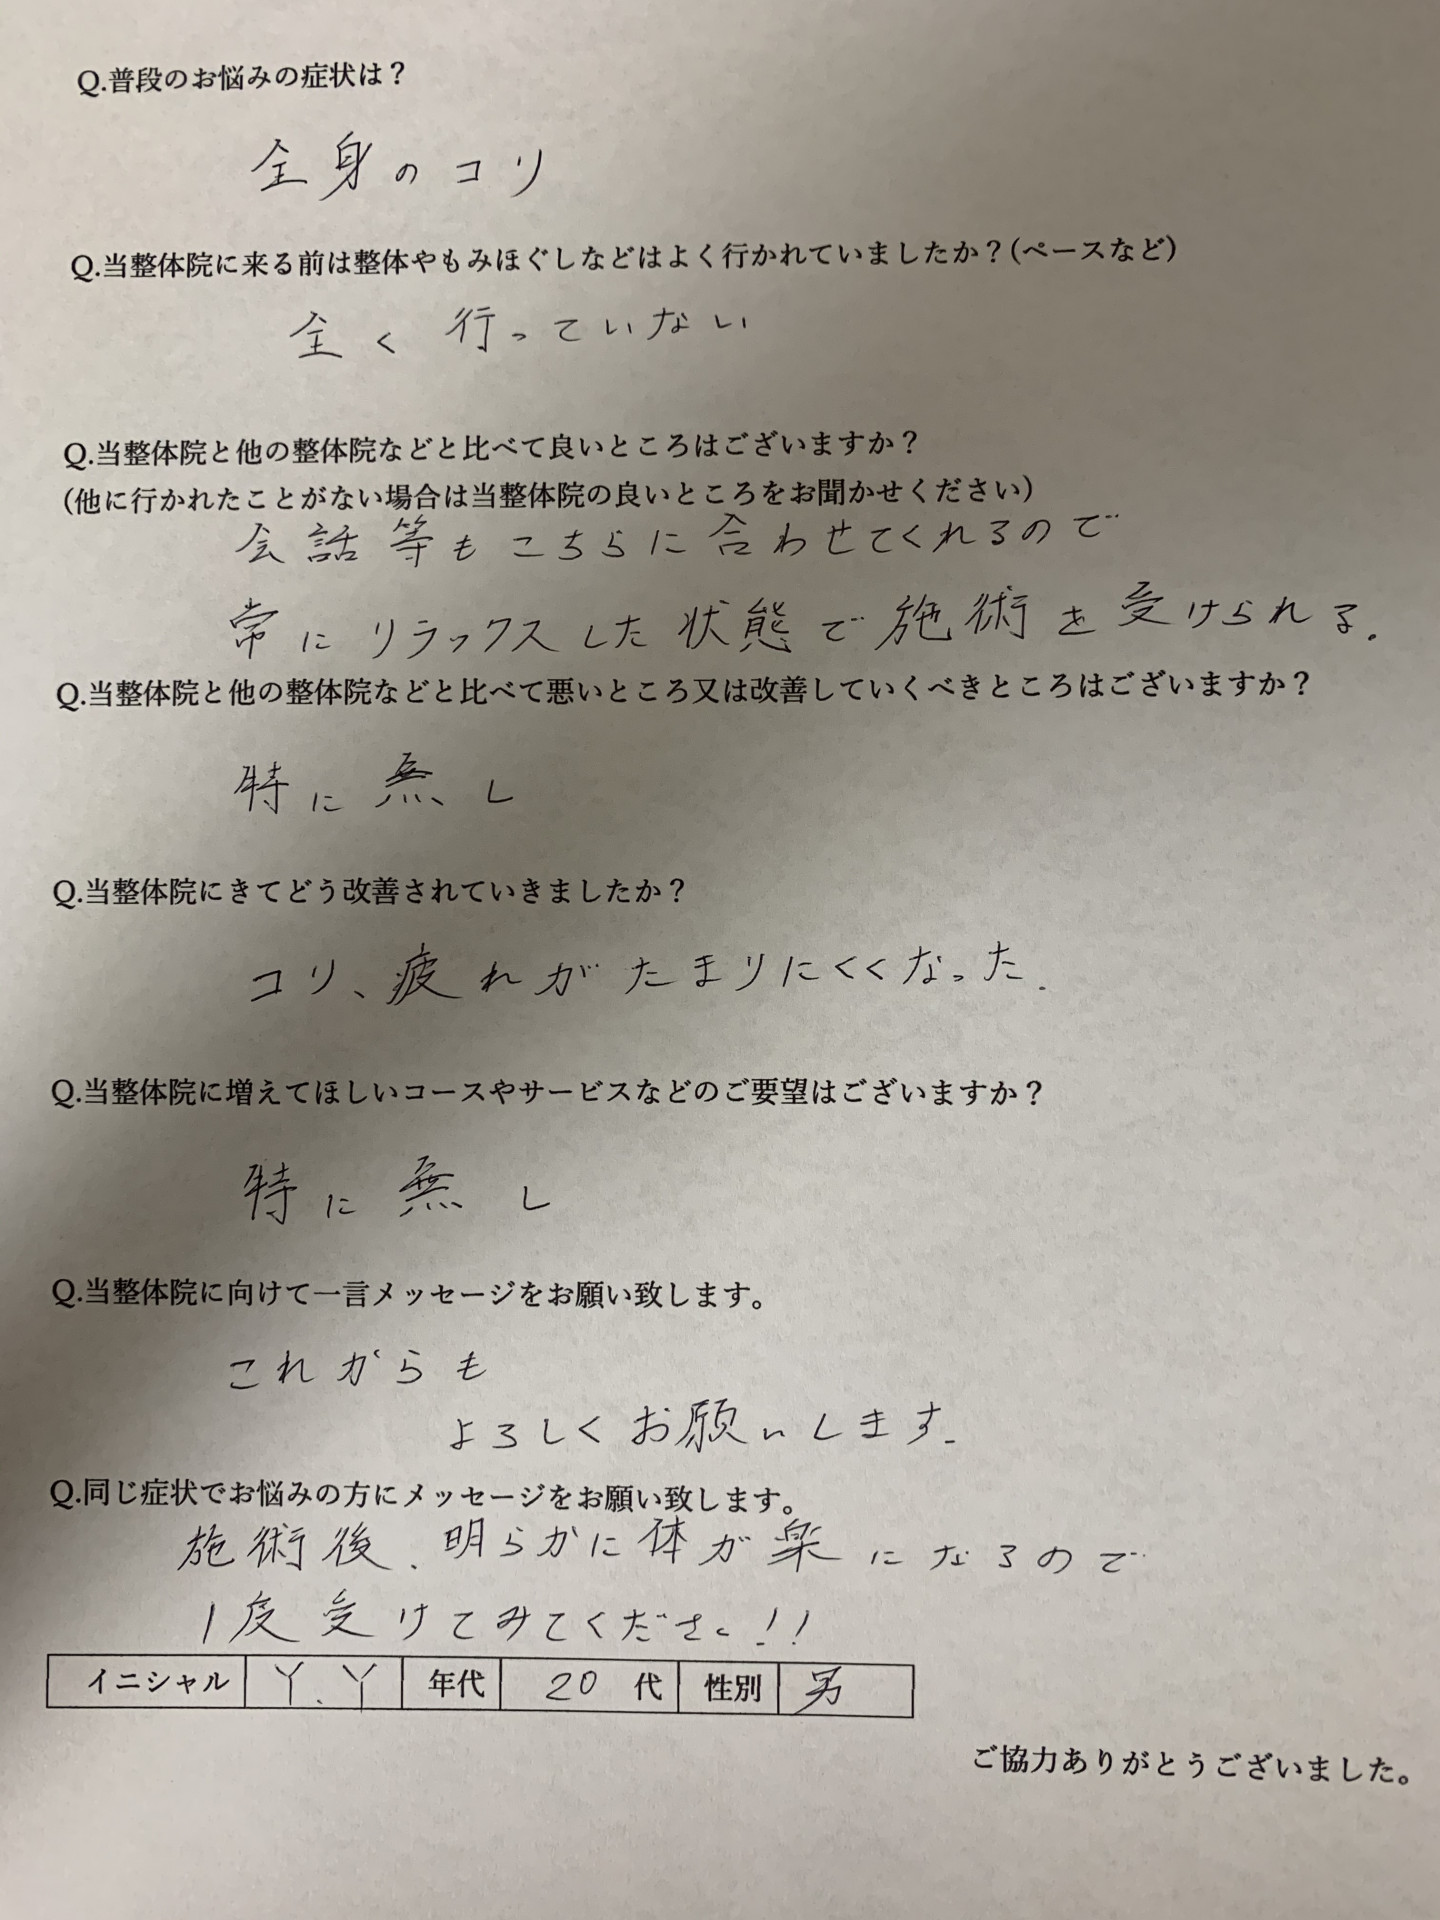 Q.普段のお悩みの症状は？
全身のコリ
Q.当整体院に来る前は整体やもみほぐしなどはよく行かれていましたか？(ペースなど)
全く行っていない
Q.当整体院と他の整体院などと比べて良いところはございますか？
(他に行かれたことがない場合は当整体院の良いところをお聞かせください)
会話等もこちらに合わせてくれるので
常にリラックスした状態で施術を受けられる.
Q.当整体院と他の整体院などと比べて悪いところ又は改善していくべきところはございますか？
特に無し
Q.当整体院にきてどう改善されていきましたか？
コリ、疲れがたまりにくくなった.
Q.当整体院に増えてほしいコースやサービスなどのご要望はございますか？
特に無し
Q.当整体院に向けて一言メッセージをお願い致します。
これからも
よろしくお願いします.
Q.同じ症状でお悩みの方にメッセージをお願い致します。
施術後、明らかに体が楽になるので
1度受けてみてください!!
イニシャル Y.Y 年代 20 代 性別 男
ご協力ありがとうございました。